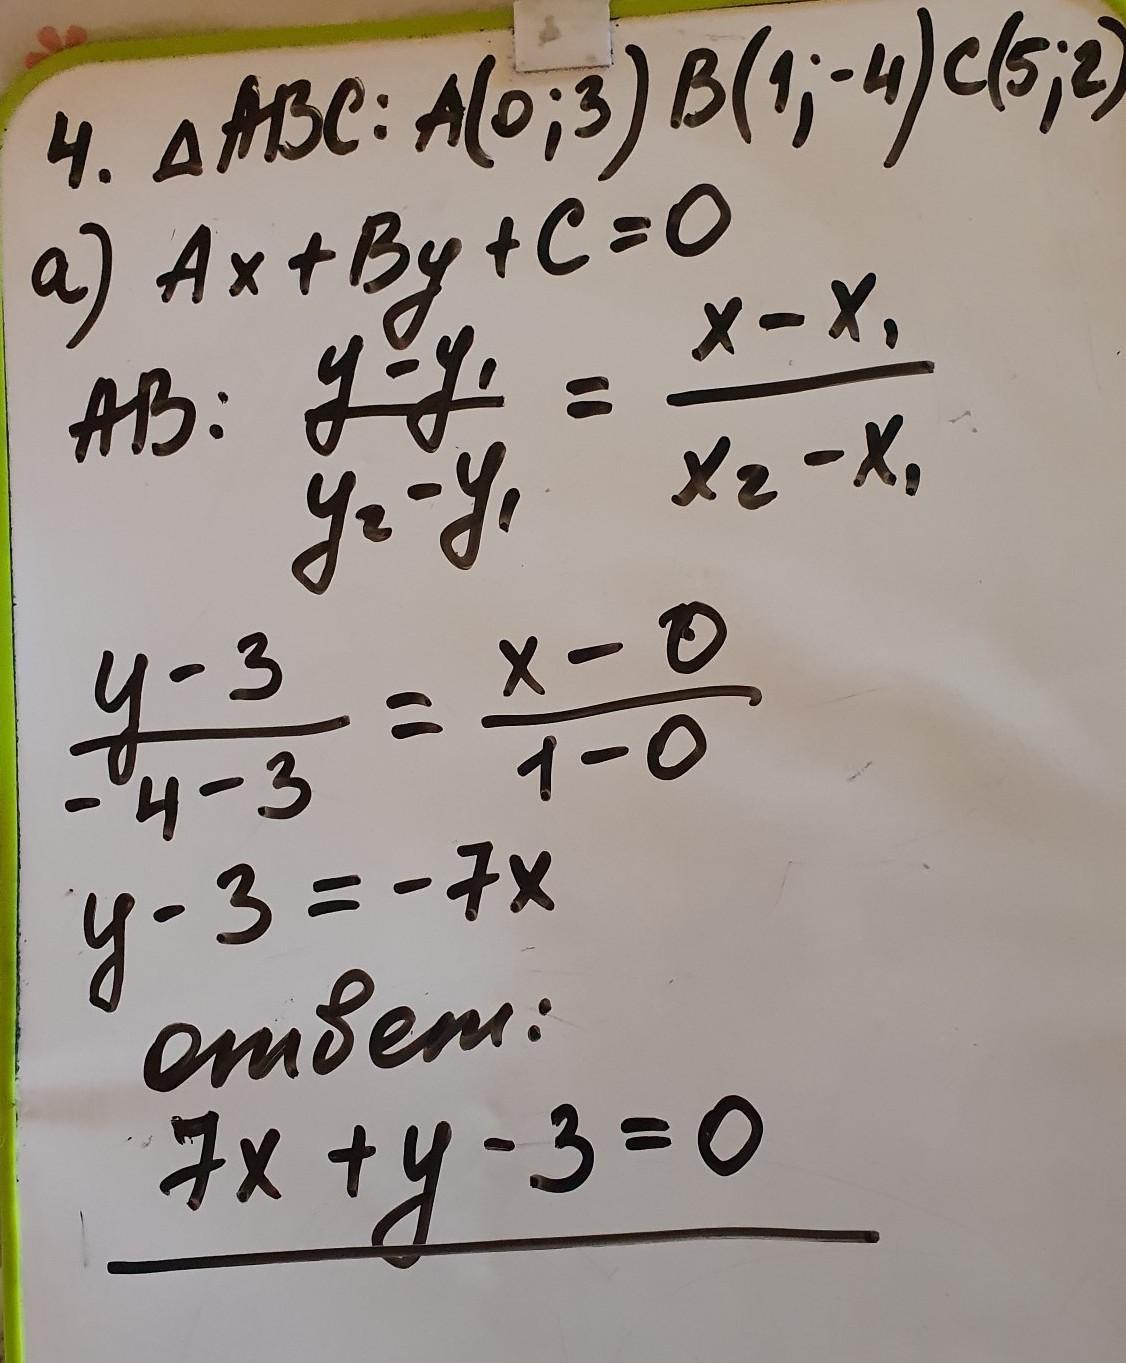 4. △ABC: A(0;3) B(1;-4) C(5;2)
a) Ax+By+C=0
AB: (y-y₁)/(y₂-y₁) = (x-x₁)/(x₂-x₁)
(y-3)/(-4-3) = (x-0)/(1-0)
y-3=-7x
ответ:
7x+y-3=0